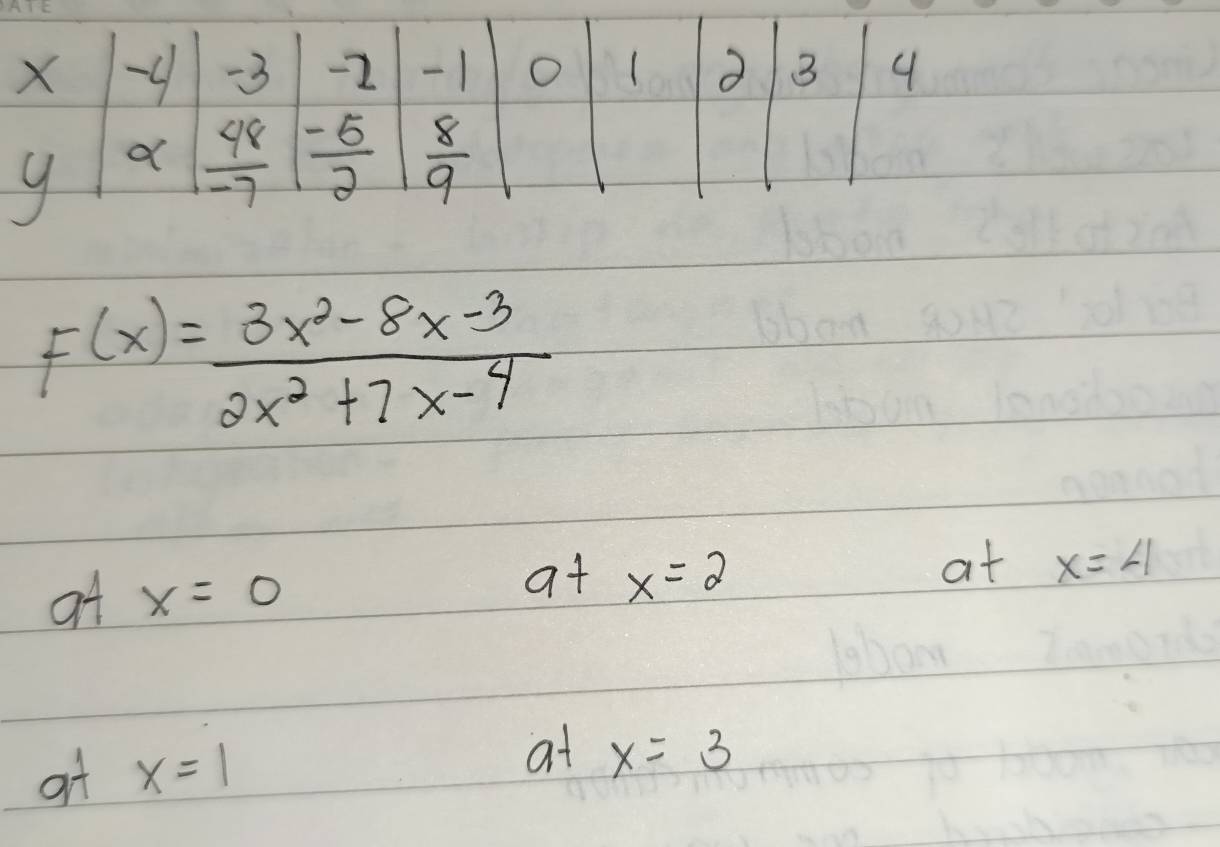 DATE
x | -4 | -3 | -2 | -1 | 0 | 1 | 2 | 3 | 4
y | ∝ | 48/-7 | -5/2 | 8/9 | | | | |
F(x) = (3x² - 8x - 3)/(2x² + 7x - 4)
at x = 0 at x = 2 at x = 4
at x = 1 at x = 3